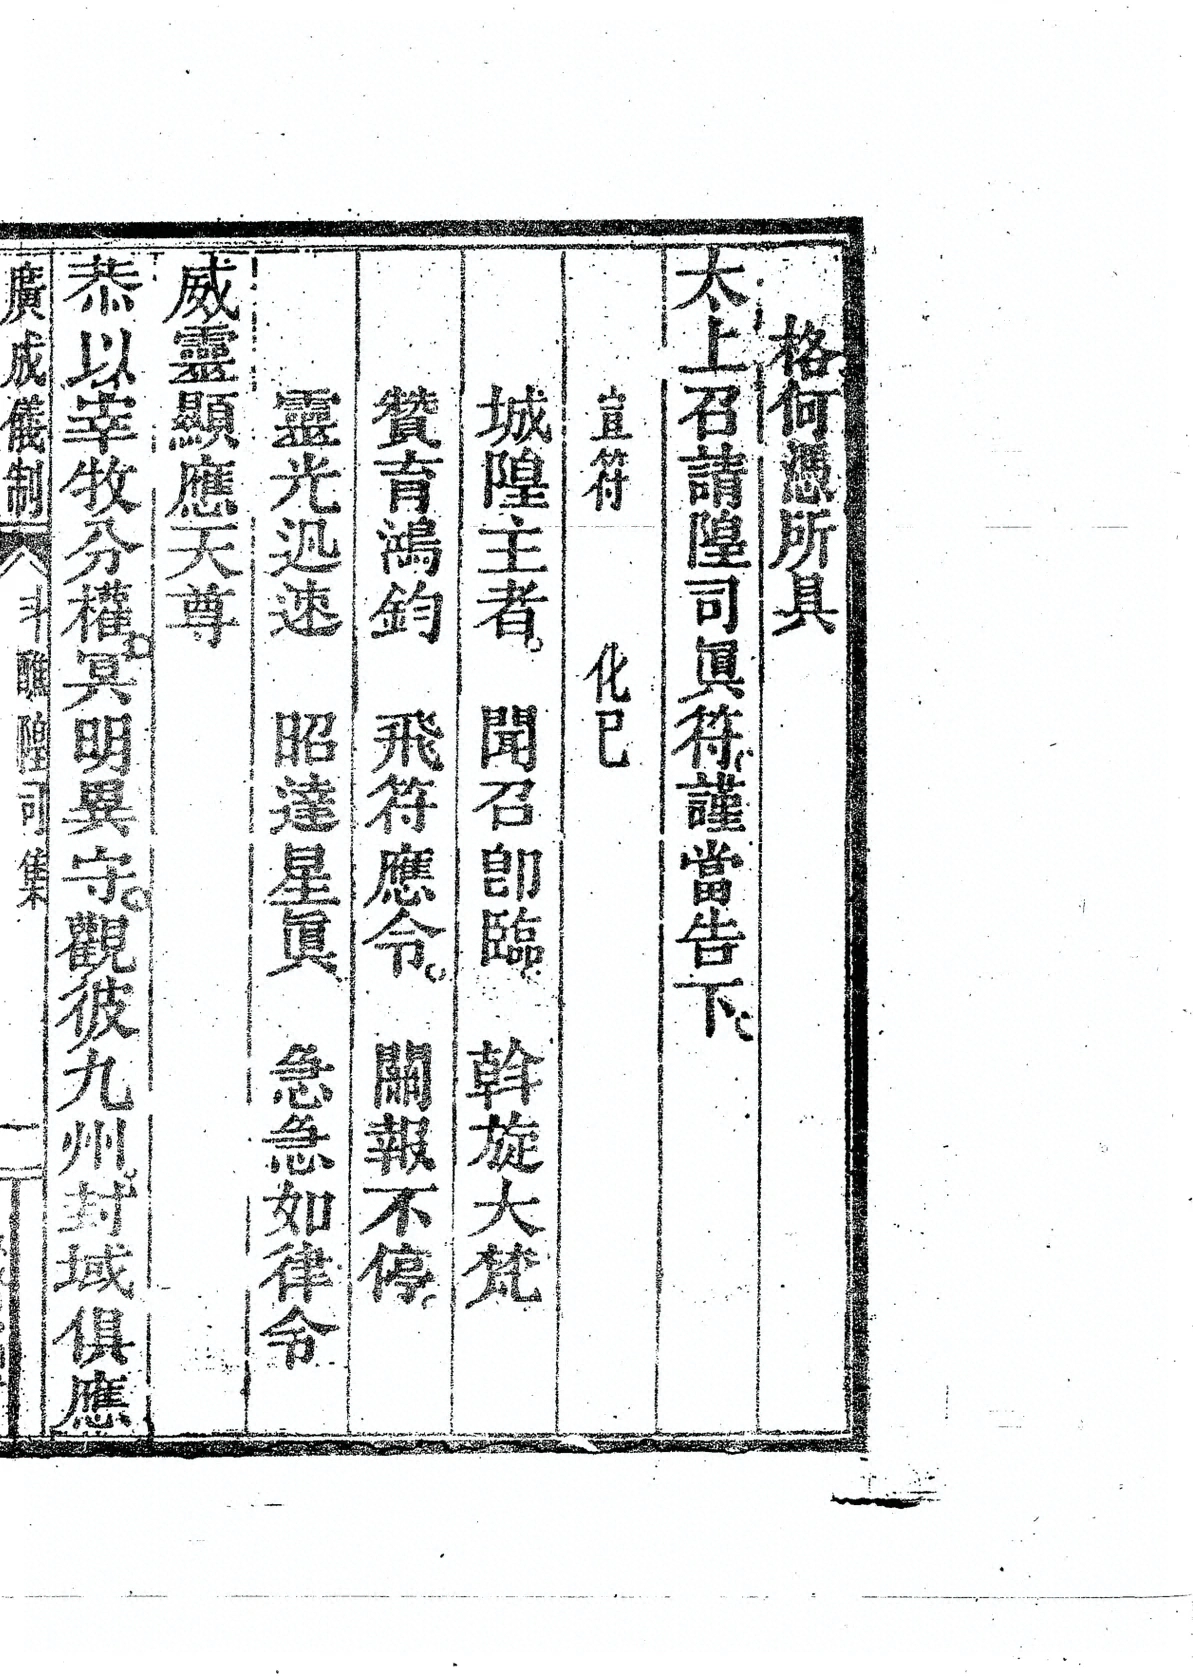 格何憑所具
太上召請隍司眞符。謹當告下。
宣符 化已
城隍主者。 聞召卽臨。 斡旋大梵
贊育鴻鈞 飛符應令。 關報不停。
靈光迅速 昭達星眞 急急如律令
威靈顯應天尊
恭以宰牧分權。冥明異守。觀彼九州。封域俱應
廣成儀制 斗醮隍司集 二